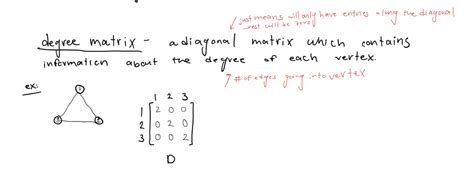 just means will only have entries along the diagonal
rest will be zero
degree matrix - a diagonal matrix which contains
information about the degree of each vertex.
# of edges going into vertex
ex:
1
1 2 3
1 2 0 0
2 0 2 0
3 0 0 2
D